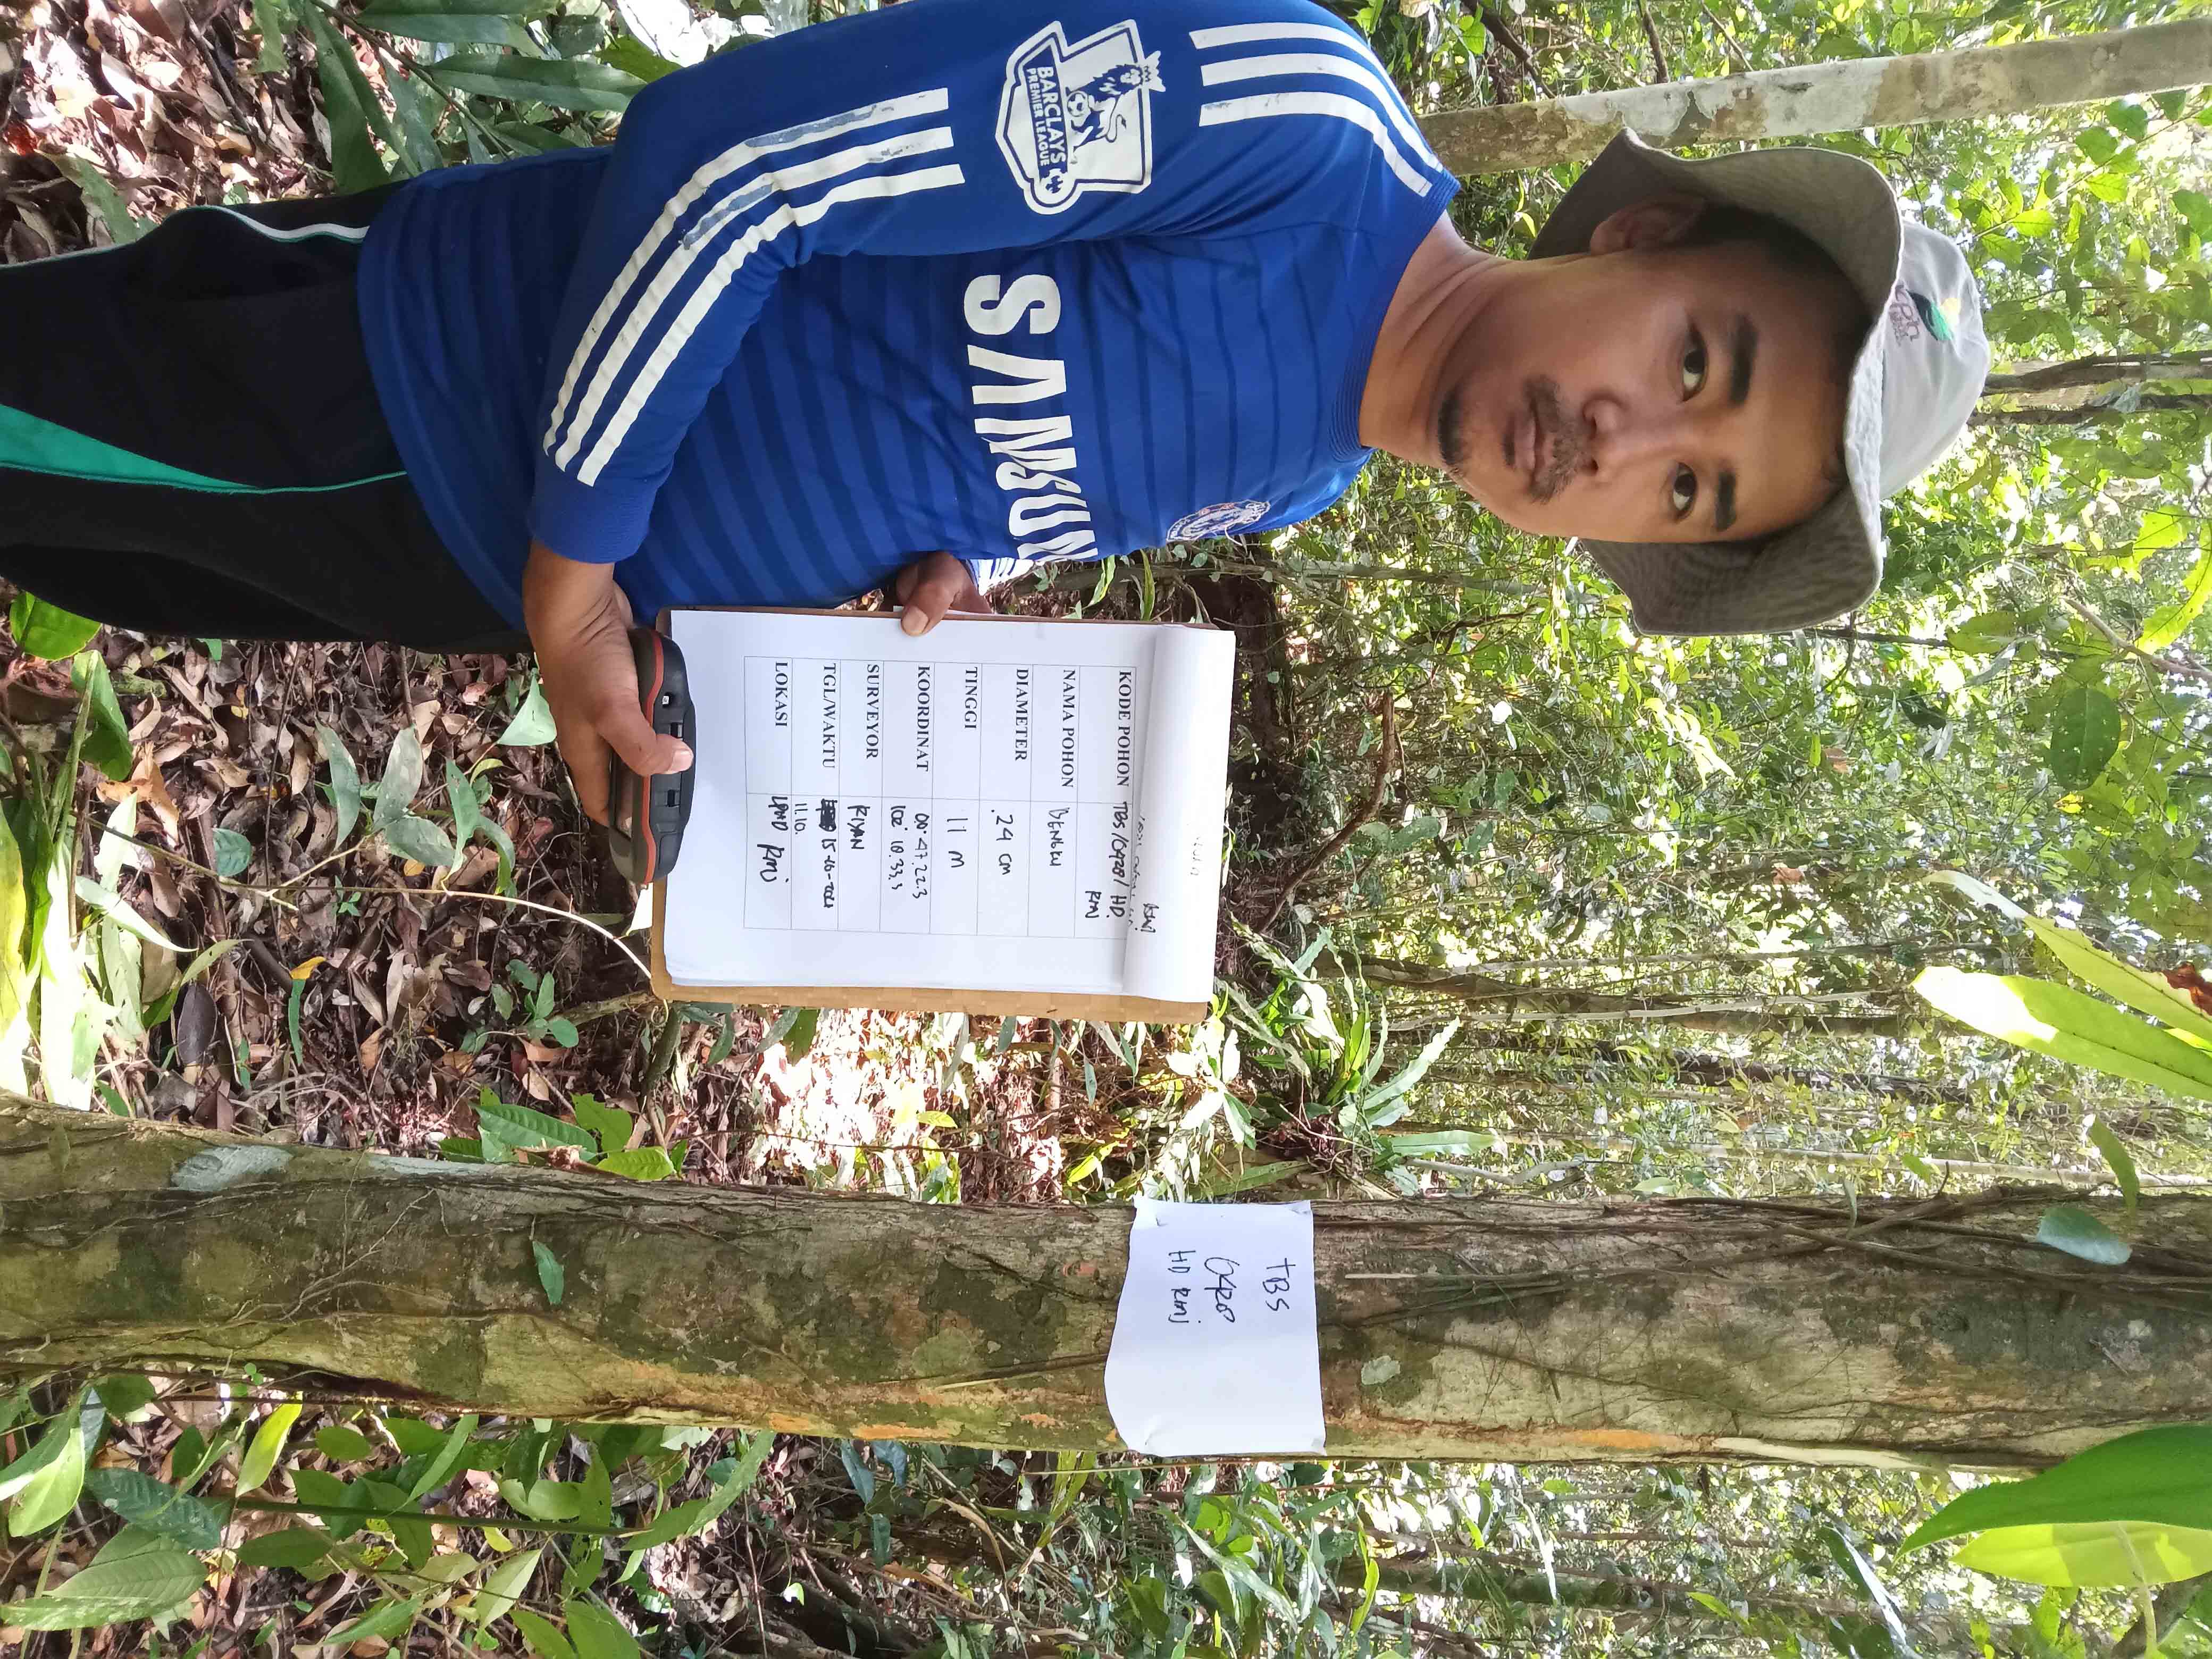 kph
BARCLAYS
PREMIER LEAGUE
SAMSUN
TBS
0428
HD RMJ
KODE POHON TBS/0428/ HD.
RMJ
NAMA POHON BENGKU
DIAMETER 24 CM
TINGGI 11 M
KOORDINAT 00° 47.22.3
102° 18.33.5
SURVEYOR RIYAN
TGL/WAKTU 15-10-2021
11.10.
LOKASI LPHD RMJ